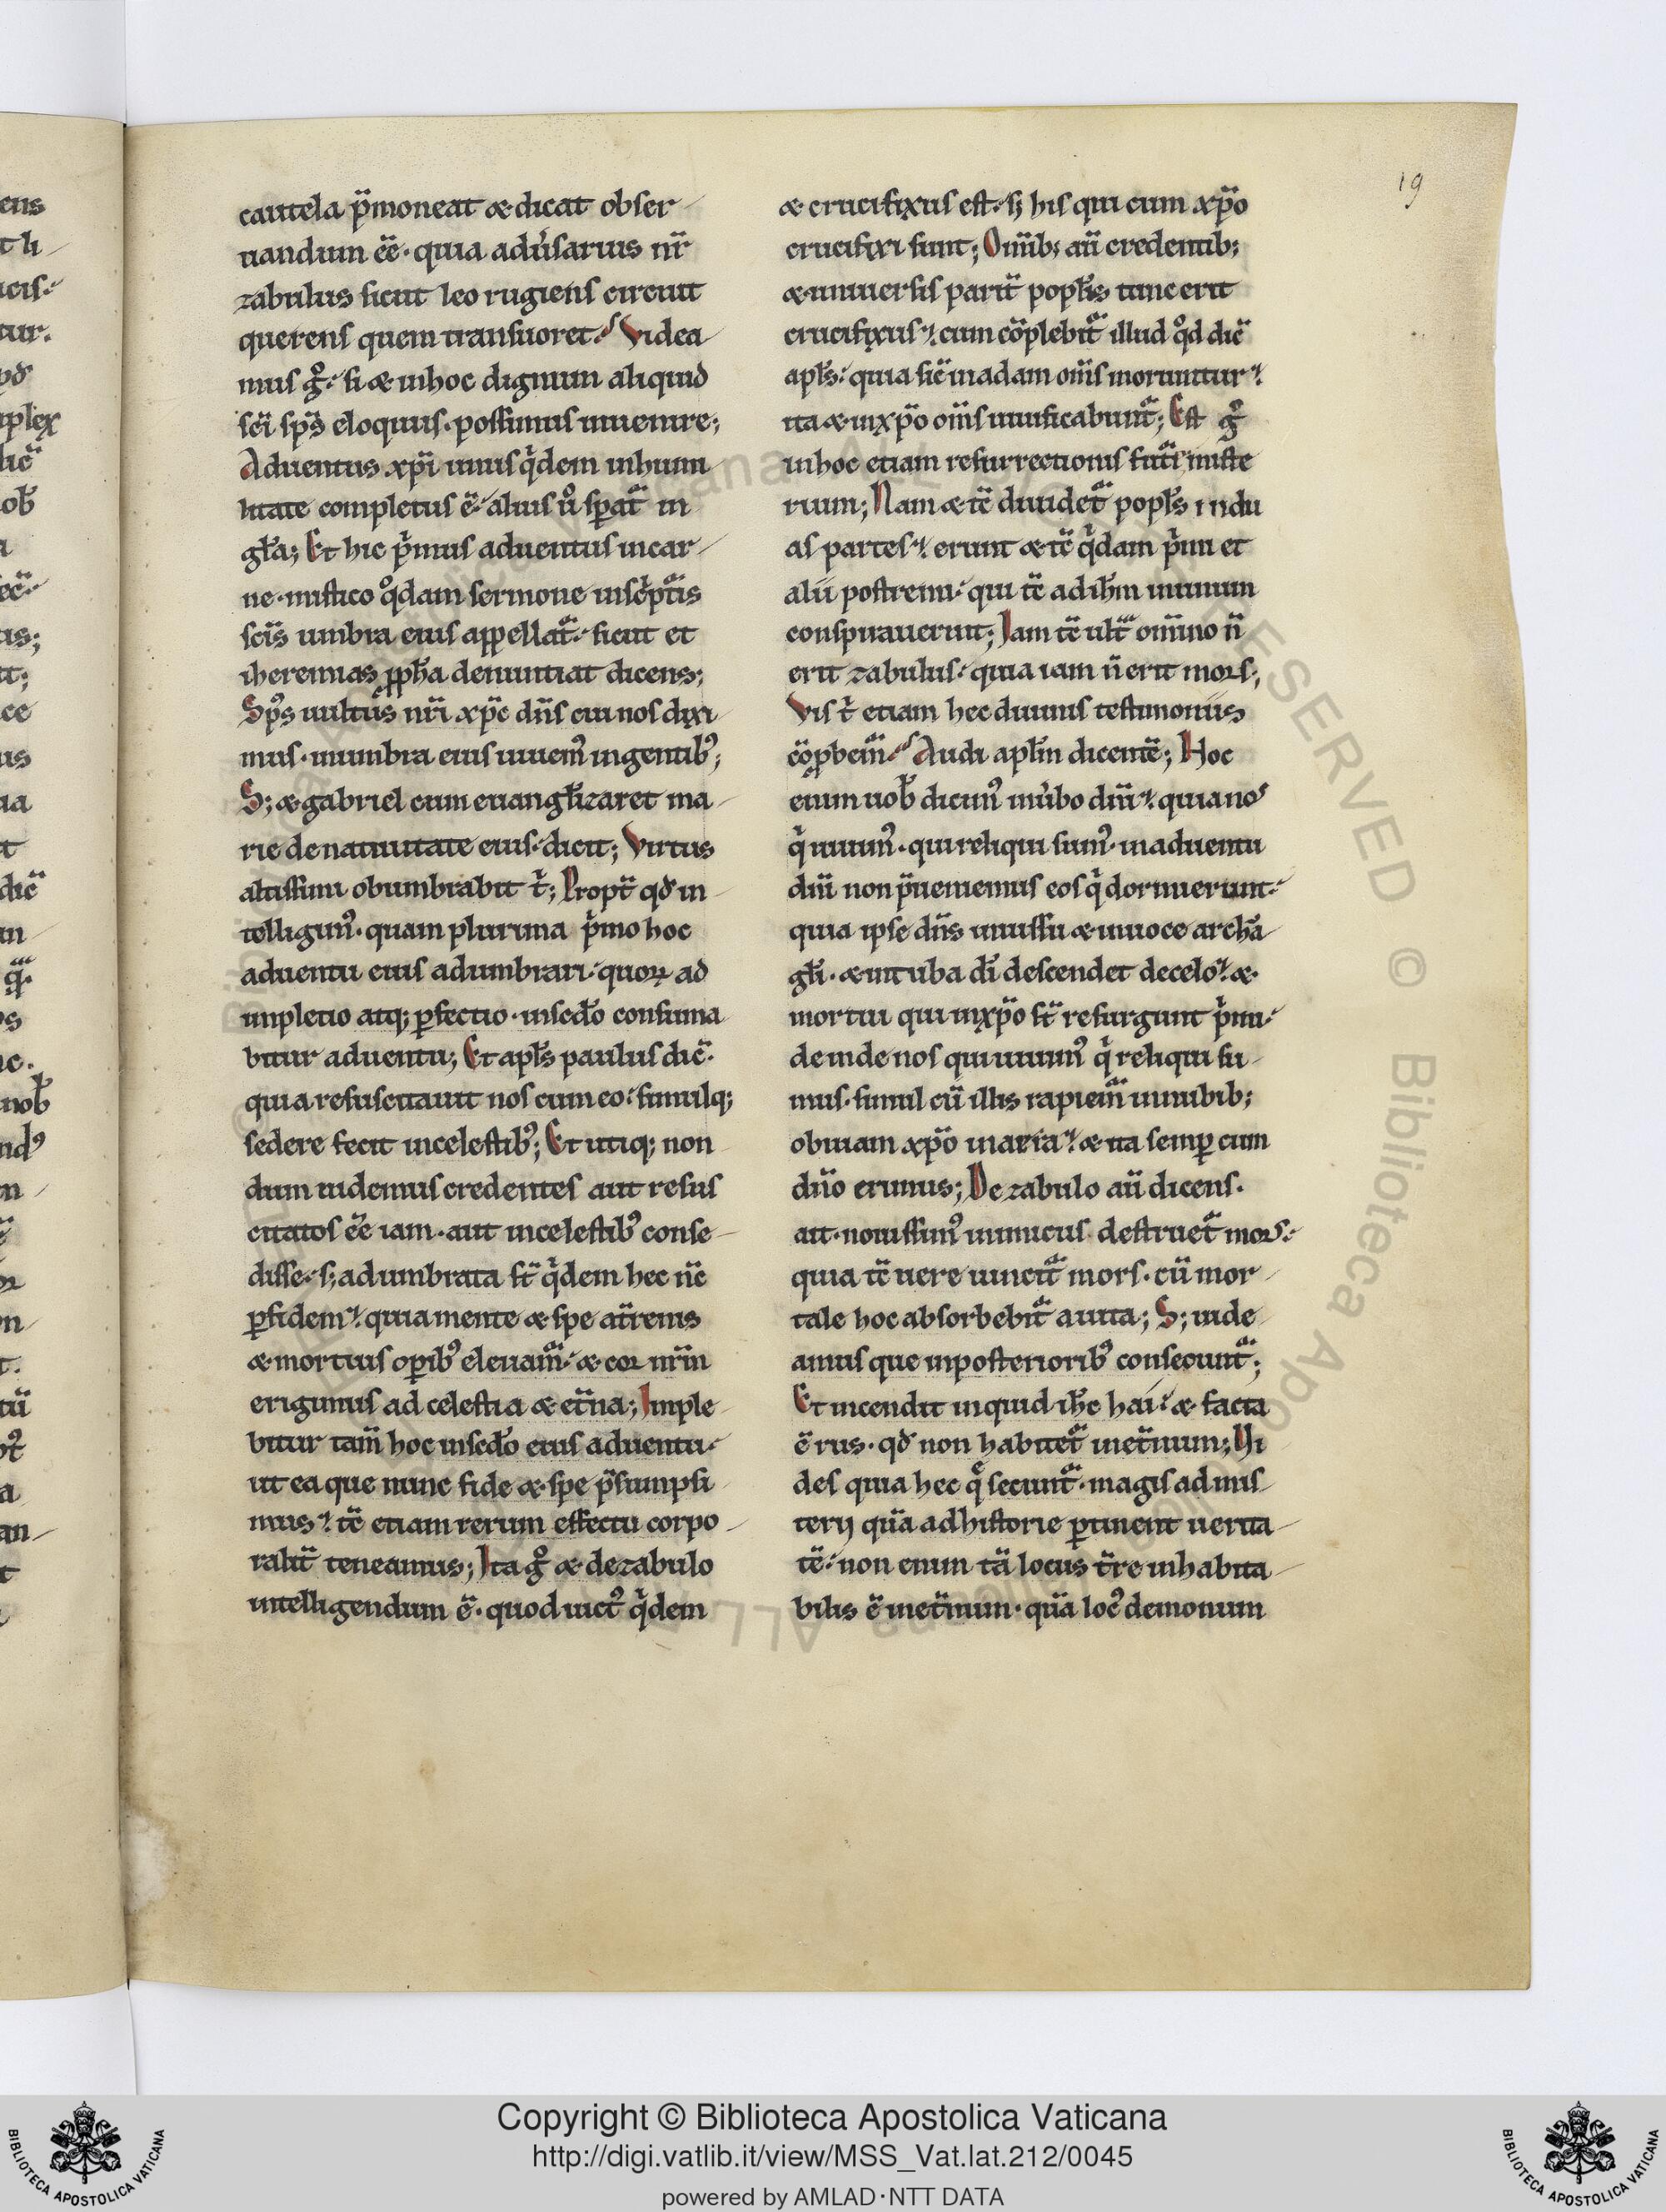 cautela p̄moneat & dicat obser-
uandum ēē· quia adu̾sarius nr̄
zabulus sicut leo rugiens circuit
querens quem transuoret· Videa
mus g̊· si & in hoc dignum aliquid
sc̄i sp̄s eloquiis· possimus inuenire;
Aduentus xp̄i unus q̇dem in humi-
litate completus ē· alius ů sperat̄ in
gl̄a; Et hic ṗmus aduentus in car-
ne· mistico q̊dam sermone in sċpt̄is
sc̄is umbra eius appellat̄· sicut et
iheremias ꝓph̄a denuntiat dicens;
Sp̄s uultus nr̄i xp̄c dn̄s cui nos dixi
mus· in umbra eius uiuem᷒ in gentib᷒;
S; & gabriel cum euangl̄izaret ma-
rie de natiuitate eius· dicit; Virtus
altissimi obumbrabit ṫ; Propt̄ qđ in-
telligim᷒· quam plurima ṗmo hoc
aduentu eius adumbrari· quoꝝ ad
impletio atq; ꝑfectio· in sc̄do consuma
bitur aduentu; Et apl̄s paulus dic̄·
quia resuscitauit nos cum eo· simulq;
sedere fecit in celestib᷒; Et utiq; non
dum uidemus credentes aut resus
citatos ēē iam· aut in celestib᷒ conse-
disse· s; adumbrata st̄ q̇dem hec nc̄
ꝑ fidem· quia mente & spe at̄renis
& mortuis oꝑib᷒ eleuam̄· & cor nr̄m
erigimus ad celestia & et̄na; Imple-
bitur tam̄ hoc in sc̄do eius aduentu·
ut ea que nunc fide & spe p̄sumpsi
mus· tc̄ etiam rerum effectu corpo-
ralit̄ teneamus; Ita g̊ & de zabulo
intelligendum ē· quod uict᷒ q̇dem
& crucifixus est· sꝫ his qui cum xp̄o
crucifixi sunt; Om̄ib; aū credentib;
& uniuersis parit̄ popl̄is tunc erit
crucifixus· cum cōplebit̄ illud q̊d dic̄
apl̄s· quia sic̄ in adam om̄s moriuntur·
ita & in xp̄o om̄s uiuificabunt̄; Est g̊
in hoc etiam resurrectionis fut̄i miste
rium; Nam & tc̄ diuidet̄ popl̄s in du
as partes· erunt & tc̄ q̇dam ṗmi et
alii postremi· qui tc̄ ad ih̄m unum
conspirauerunt; Iam tc̄ ult̄ om̄ino n̄
erit zabulus· quia iam n̄ erit mors;
Vis ṫ etiam hec diuinis testimoniis
cōꝓbem̄· Audi apl̄m dicentē; Hoc
enim uob̄ dicim᷒ in u̇bo dn̄i· quia nos
q̇ uiuim᷒· qui reliqui sum᷒· in aduentu
dn̄i non p̄ueniemus eos q̇ dormierunt·
quia ipse dn̄s in iussu & in uoce archā-
gl̄i· & in tuba dī descendet de celo· &
mortui qui in xp̄o st̄ resurgunt ṗmi·
deinde nos qui uiuim᷒ q̇ reliqui su-
mus· simul cū illis rapiem̄ in nubib;
obuiam xp̄o in aera· & ita semꝑ cum
dn̄o erimus; De zabulo aū dicens·
ait· nouissim᷒ inimicus destruet̄ mors·
quia tc̄ uere uincit̄ mors· cū mor-
tale hoc absorbebit̄ a uita; S; uide-
amus que in posteriorib᷒ consecunt̄;
Et incendit inquid ih̄c hai· & facta
ē rus· qđ non habitet̄ in et̄num; Vi
des quia hec q̄ secunt̄· magis ad mis-
terij quā ad historie ꝑtinent uerita-
tē· non enim tā locus t̄re inhabita-
bilis ē in et̄num· quā loc᷒ demonum
19
ens
Biblioteca Apostolica Vaticana ALL RIGHTS RESERVED ©
Copyright © Biblioteca Apostolica Vaticana
http://digi.vatlib.it/view/MSS_Vat.lat.212/0045
powered by AMLAD·NTT DATA
BIBLIOTECA APOSTOLICA VATICANA
BIBLIOTECA APOSTOLICA VATICANA